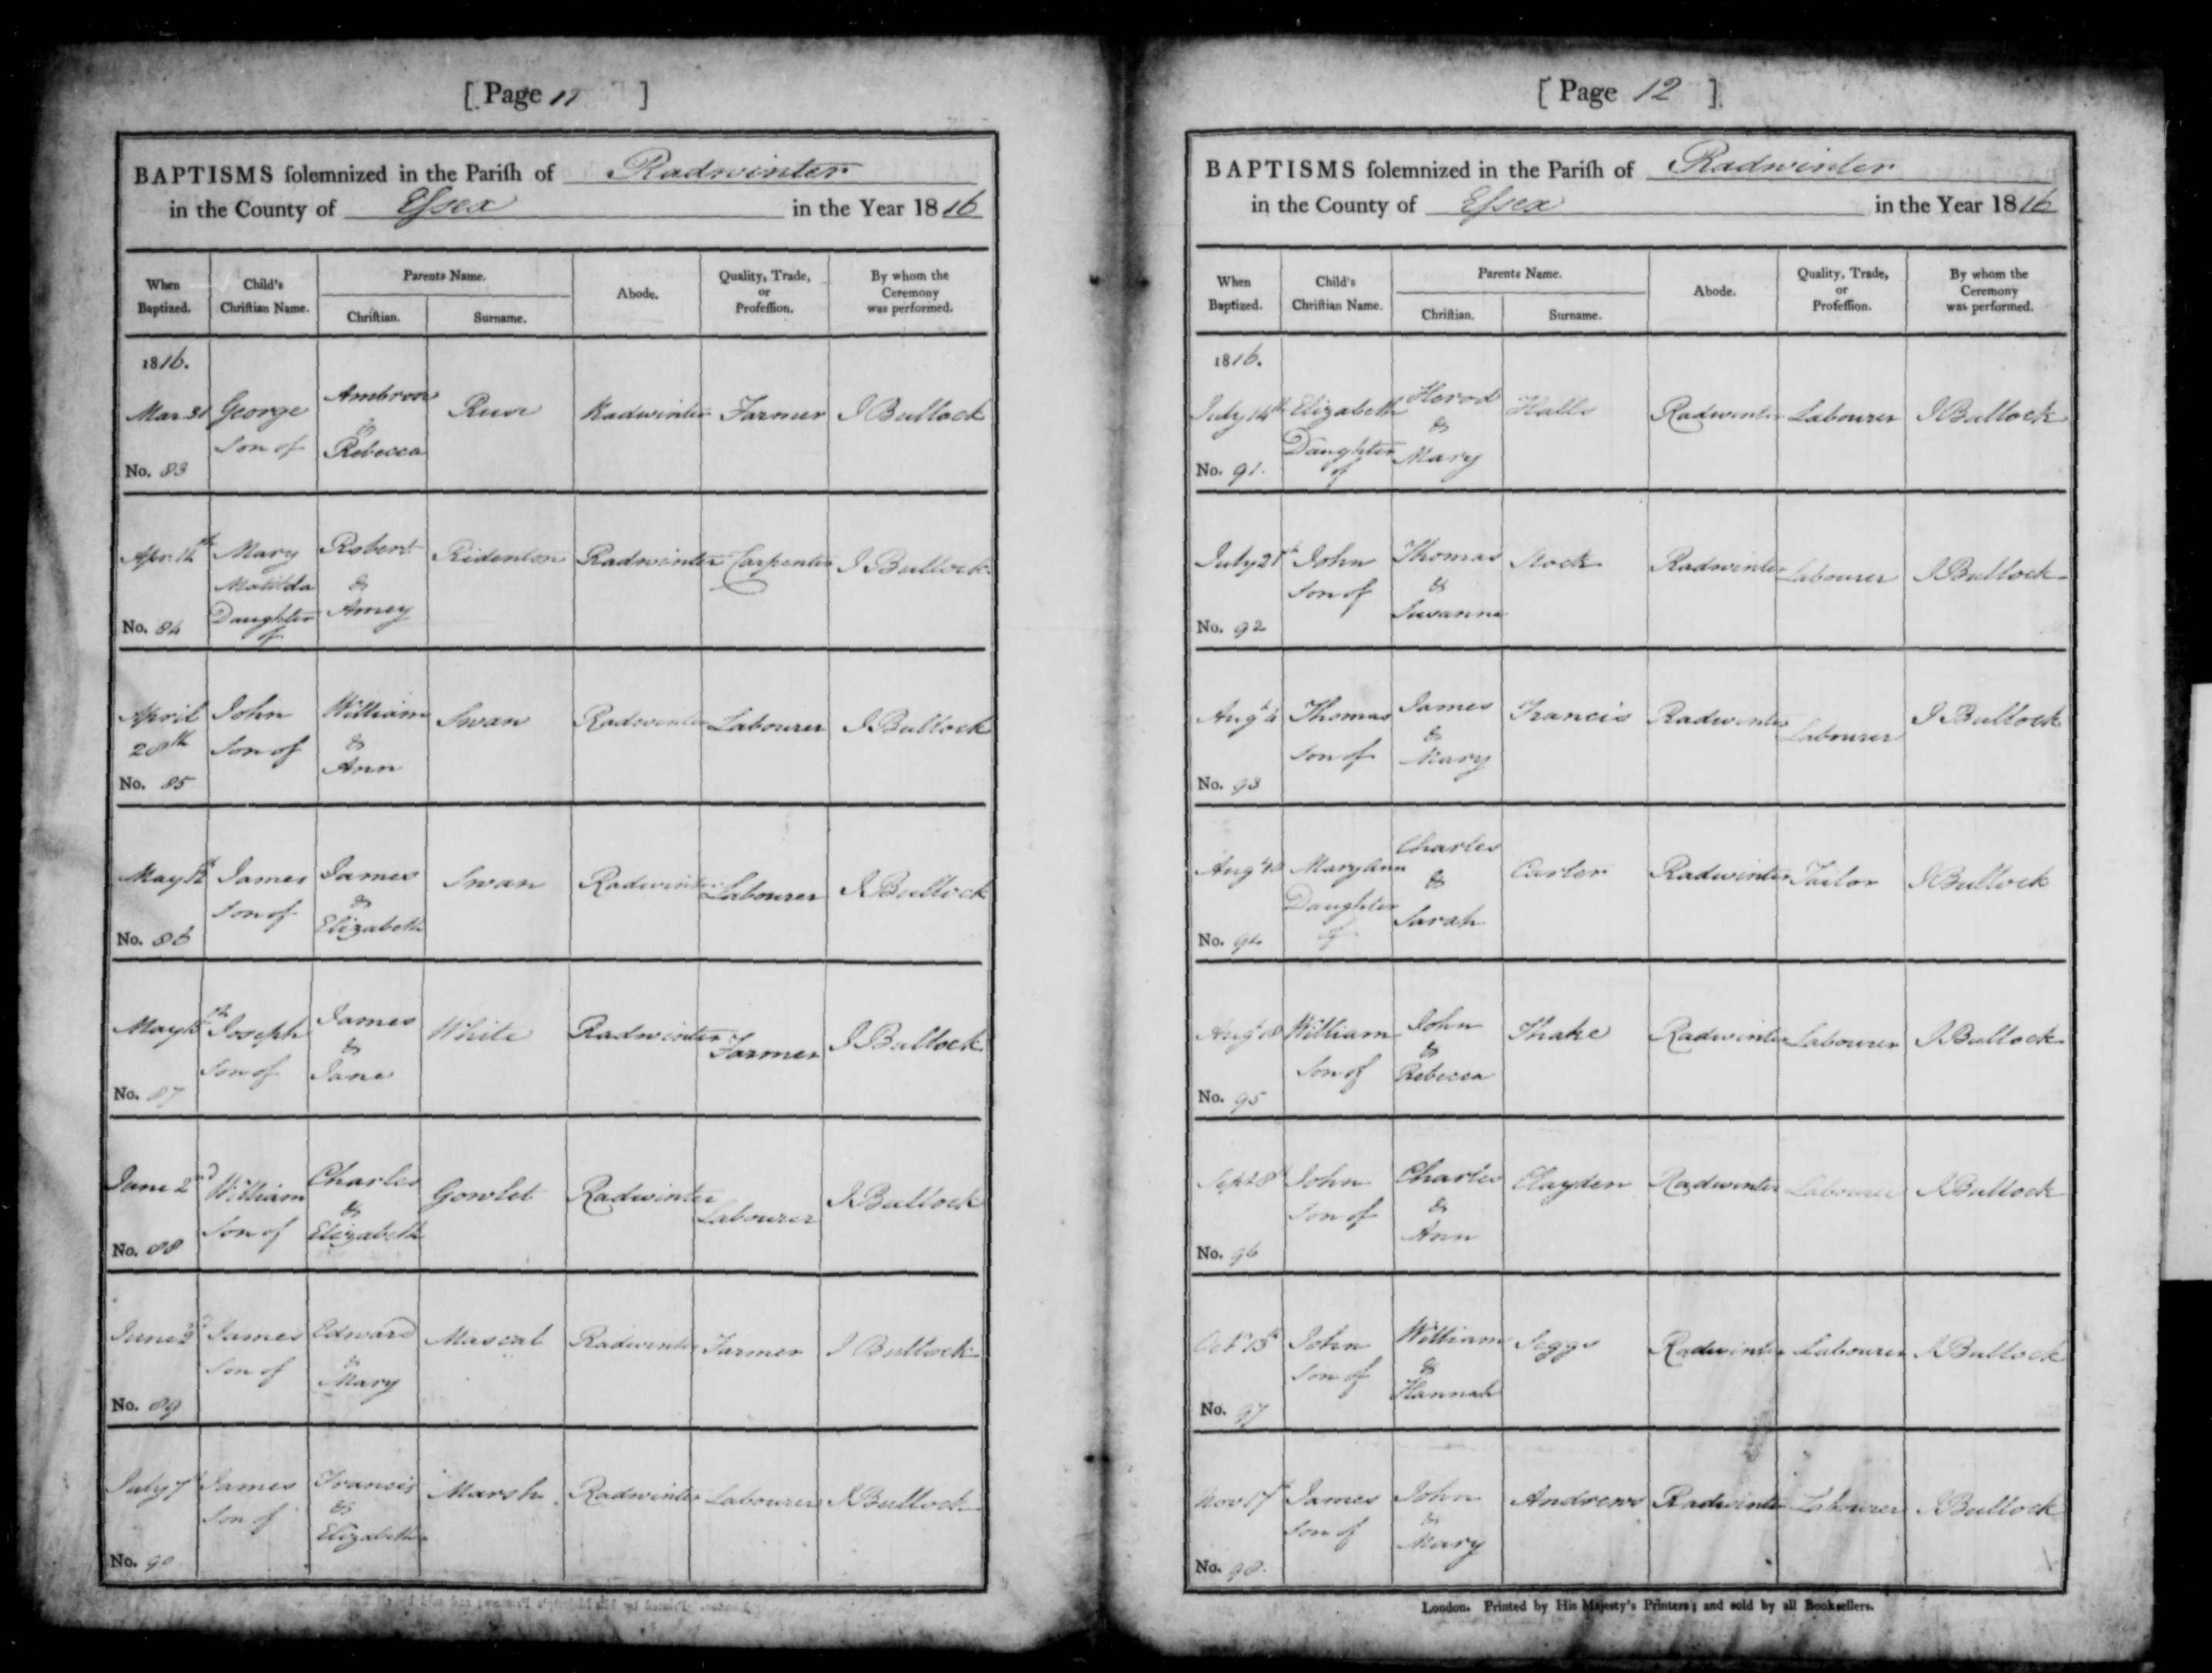 [ Page 11 ]
BAPTISMS ſolemnized in the Pariſh of Radwinter
in the County of Eſsex in the Year 1816
When Baptized. Child's Chriſtian Name. Parents Name. Chriſtian. Surname. Abode. Quality, Trade, or Profeſſion. By whom the Ceremony was performed.
1816.
Mar 31 George Ambrose Ruse Radwinter Farmer J Bullock
Son of & Rebecca
No. 83
Apr. 14th Mary Robert Ridenton Radwinter Carpenter J Bullock
Matilda &
Daughter Amey
of
No. 84
April John William Swan Radwinter Labourer J Bullock
28th Son of & Ann
No. 85
May 12 James James Swan Radwinter Labourer J Bullock
Son of & Elizabeth
No. 86
May Joseph James White Radwinter Farmer J Bullock
Son of & Jane
No. 87
June 2nd William Charles Gowlet Radwinter Labourer J Bullock
Son of & Elizabeth
No. 88
June James Edward Mascal Radwinter Farmer J Bullock
Son of & Mary
No. 89
July 7 James Francis Marsh Radwinter Labourer J Bullock
Son of & Elizabeth
No. 90
[ Page 12 ]
BAPTISMS ſolemnized in the Pariſh of Radwinter
in the County of Eſsex in the Year 1816
When Baptized. Child's Chriſtian Name. Parents Name. Chriſtian. Surname. Abode. Quality, Trade, or Profeſſion. By whom the Ceremony was performed.
1816.
July 14th Elizabeth Herod Halls Radwinter Labourer J Bullock
Daughter & Mary
of
No. 91.
July 21 John Thomas Stock Radwinter Labourer J Bullock
Son of & Susanna
No. 92
Augt 4 Thomas James Francis Radwinter Labourer J Bullock
Son of & Mary
No. 93
Augt 18 Mary Ann Charles Carter Radwinter Tailor J Bullock
Daughter & Sarah
of
No. 94
Augt 18 William John Thake Radwinter Labourer J Bullock
Son of & Rebecca
No. 95
Sept 8 John Charles Clayden Radwinter Labourer J Bullock
Son of & Ann
No. 96
Oct 13th John William Seggs Radwinter Labourer J Bullock
Son of & Hannah
No. 97
Nov 17 James John Andrews Radwinter Labourer J Bullock
Son of & Mary
No. 98.
London. Printed by His Majesty's Printers; and sold by all Booksellers.